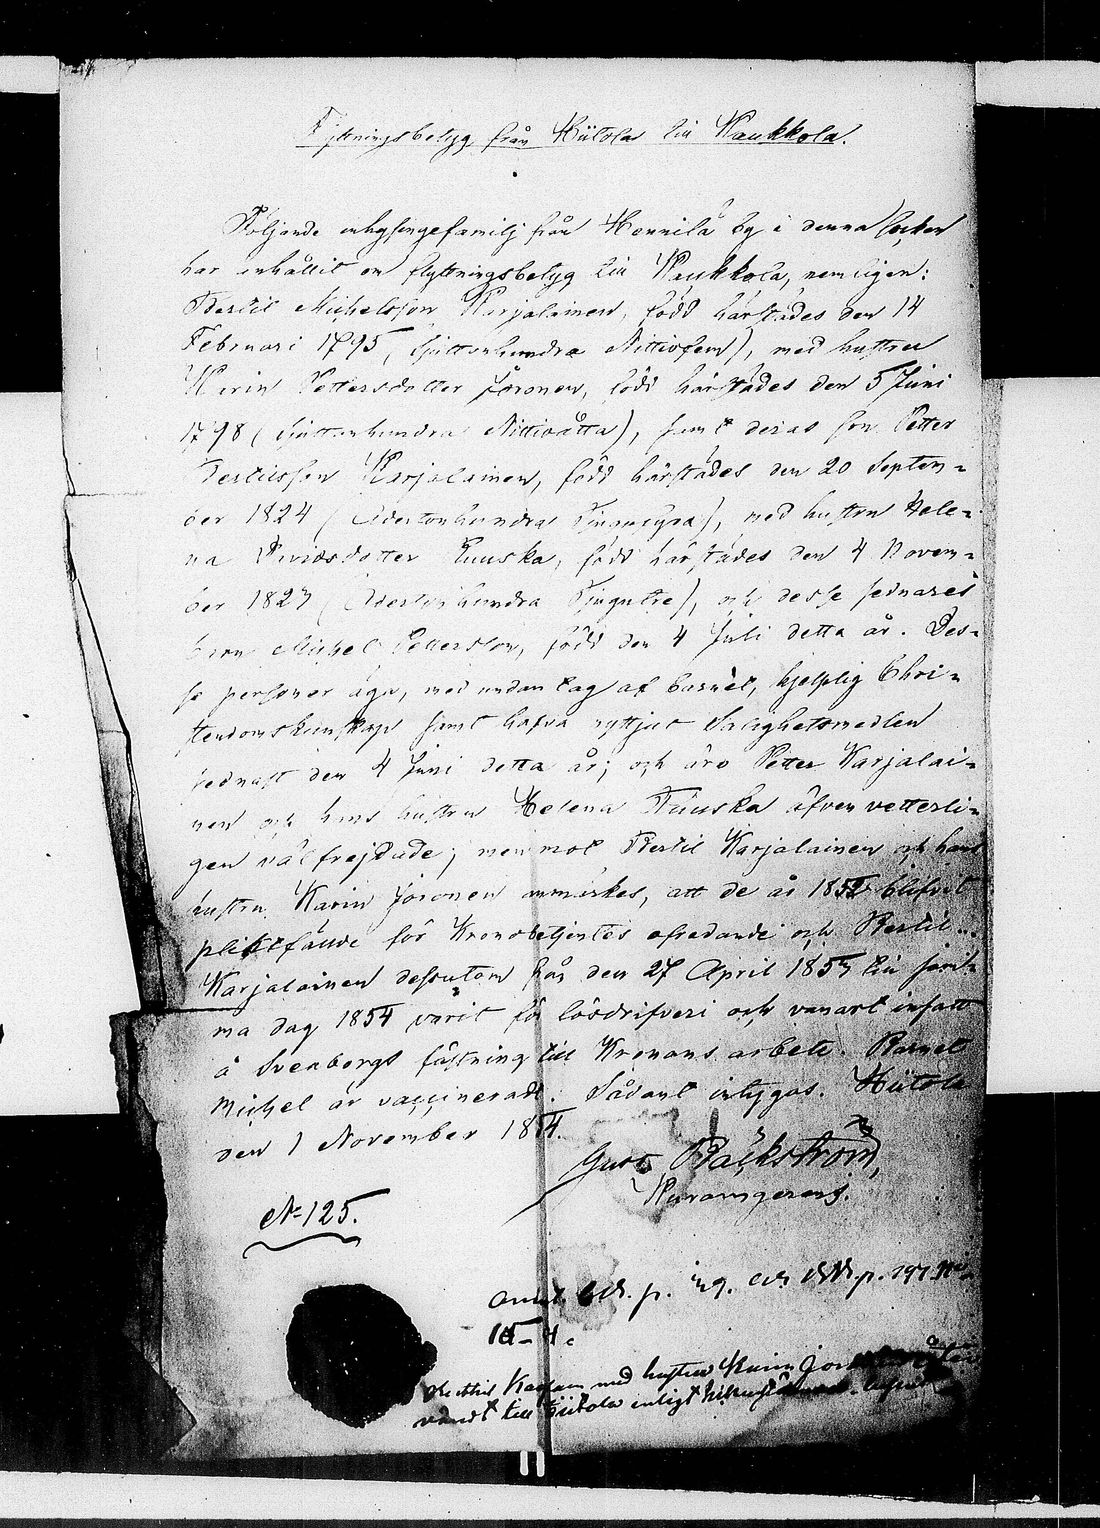 Flyttningsbetyg från Hiitola till Kaukkola.
Följande inhysingefamilj från Hennilä by i denna socken
har erhållit en flyttningsbetyg till Kaukkola, nemligen:
Bertil Michelsson Karjalainen, född härstädes den 14
Februari 1795, (sjuttonhundra Nittiofem), med hustrun
Karin Pettersdotter Joronen, född härstädes den 5 Juni
1798 (sjuttonhundra Nittioåtta), samt deras son Petter
Bertilsson Karjalainen, född härstädes den 20 Septem=
ber 1824 (Adertonhundra Tjugufyra), med hustrun Hele=
na Davidsdotter Tuuska, född härstädes den 4 Novem=
ber 1823 (Adertonhundra Tjugutre), och desse sednares
barn Michel Pettersson, född den 4 Juli detta år. Des=
se personer äga, med undantag af barnet, hjelplig Chri=
stendomskunskap samt hafva nyttjat Salighetsmedlen
sednast den 4 Juni detta år; och äro Petter Karjalai=
nen och hans hustru Helena Tuuska äfven vetterli=
gen välfrejdade; men mot Bertil Karjalainen och hans
hustru Karin Joronen anmärkes, att de år 1852 blifvit
pliktfällde för Kronobetjentes ofredande och Bertil
Karjalainen dessutom från den 27 April 1853 till sam=
ma dag 1854 varit för lösdrifveri och vanart insatt
å Sveaborgs fästning till Kronans arbete. Barnet
Michel är vaccineradt. Sådant intygas. Hiitola
den 1 November 1854.
Gust. Bäckström,
N:o 125.
med hustrun Karin
till Hiitola enligt